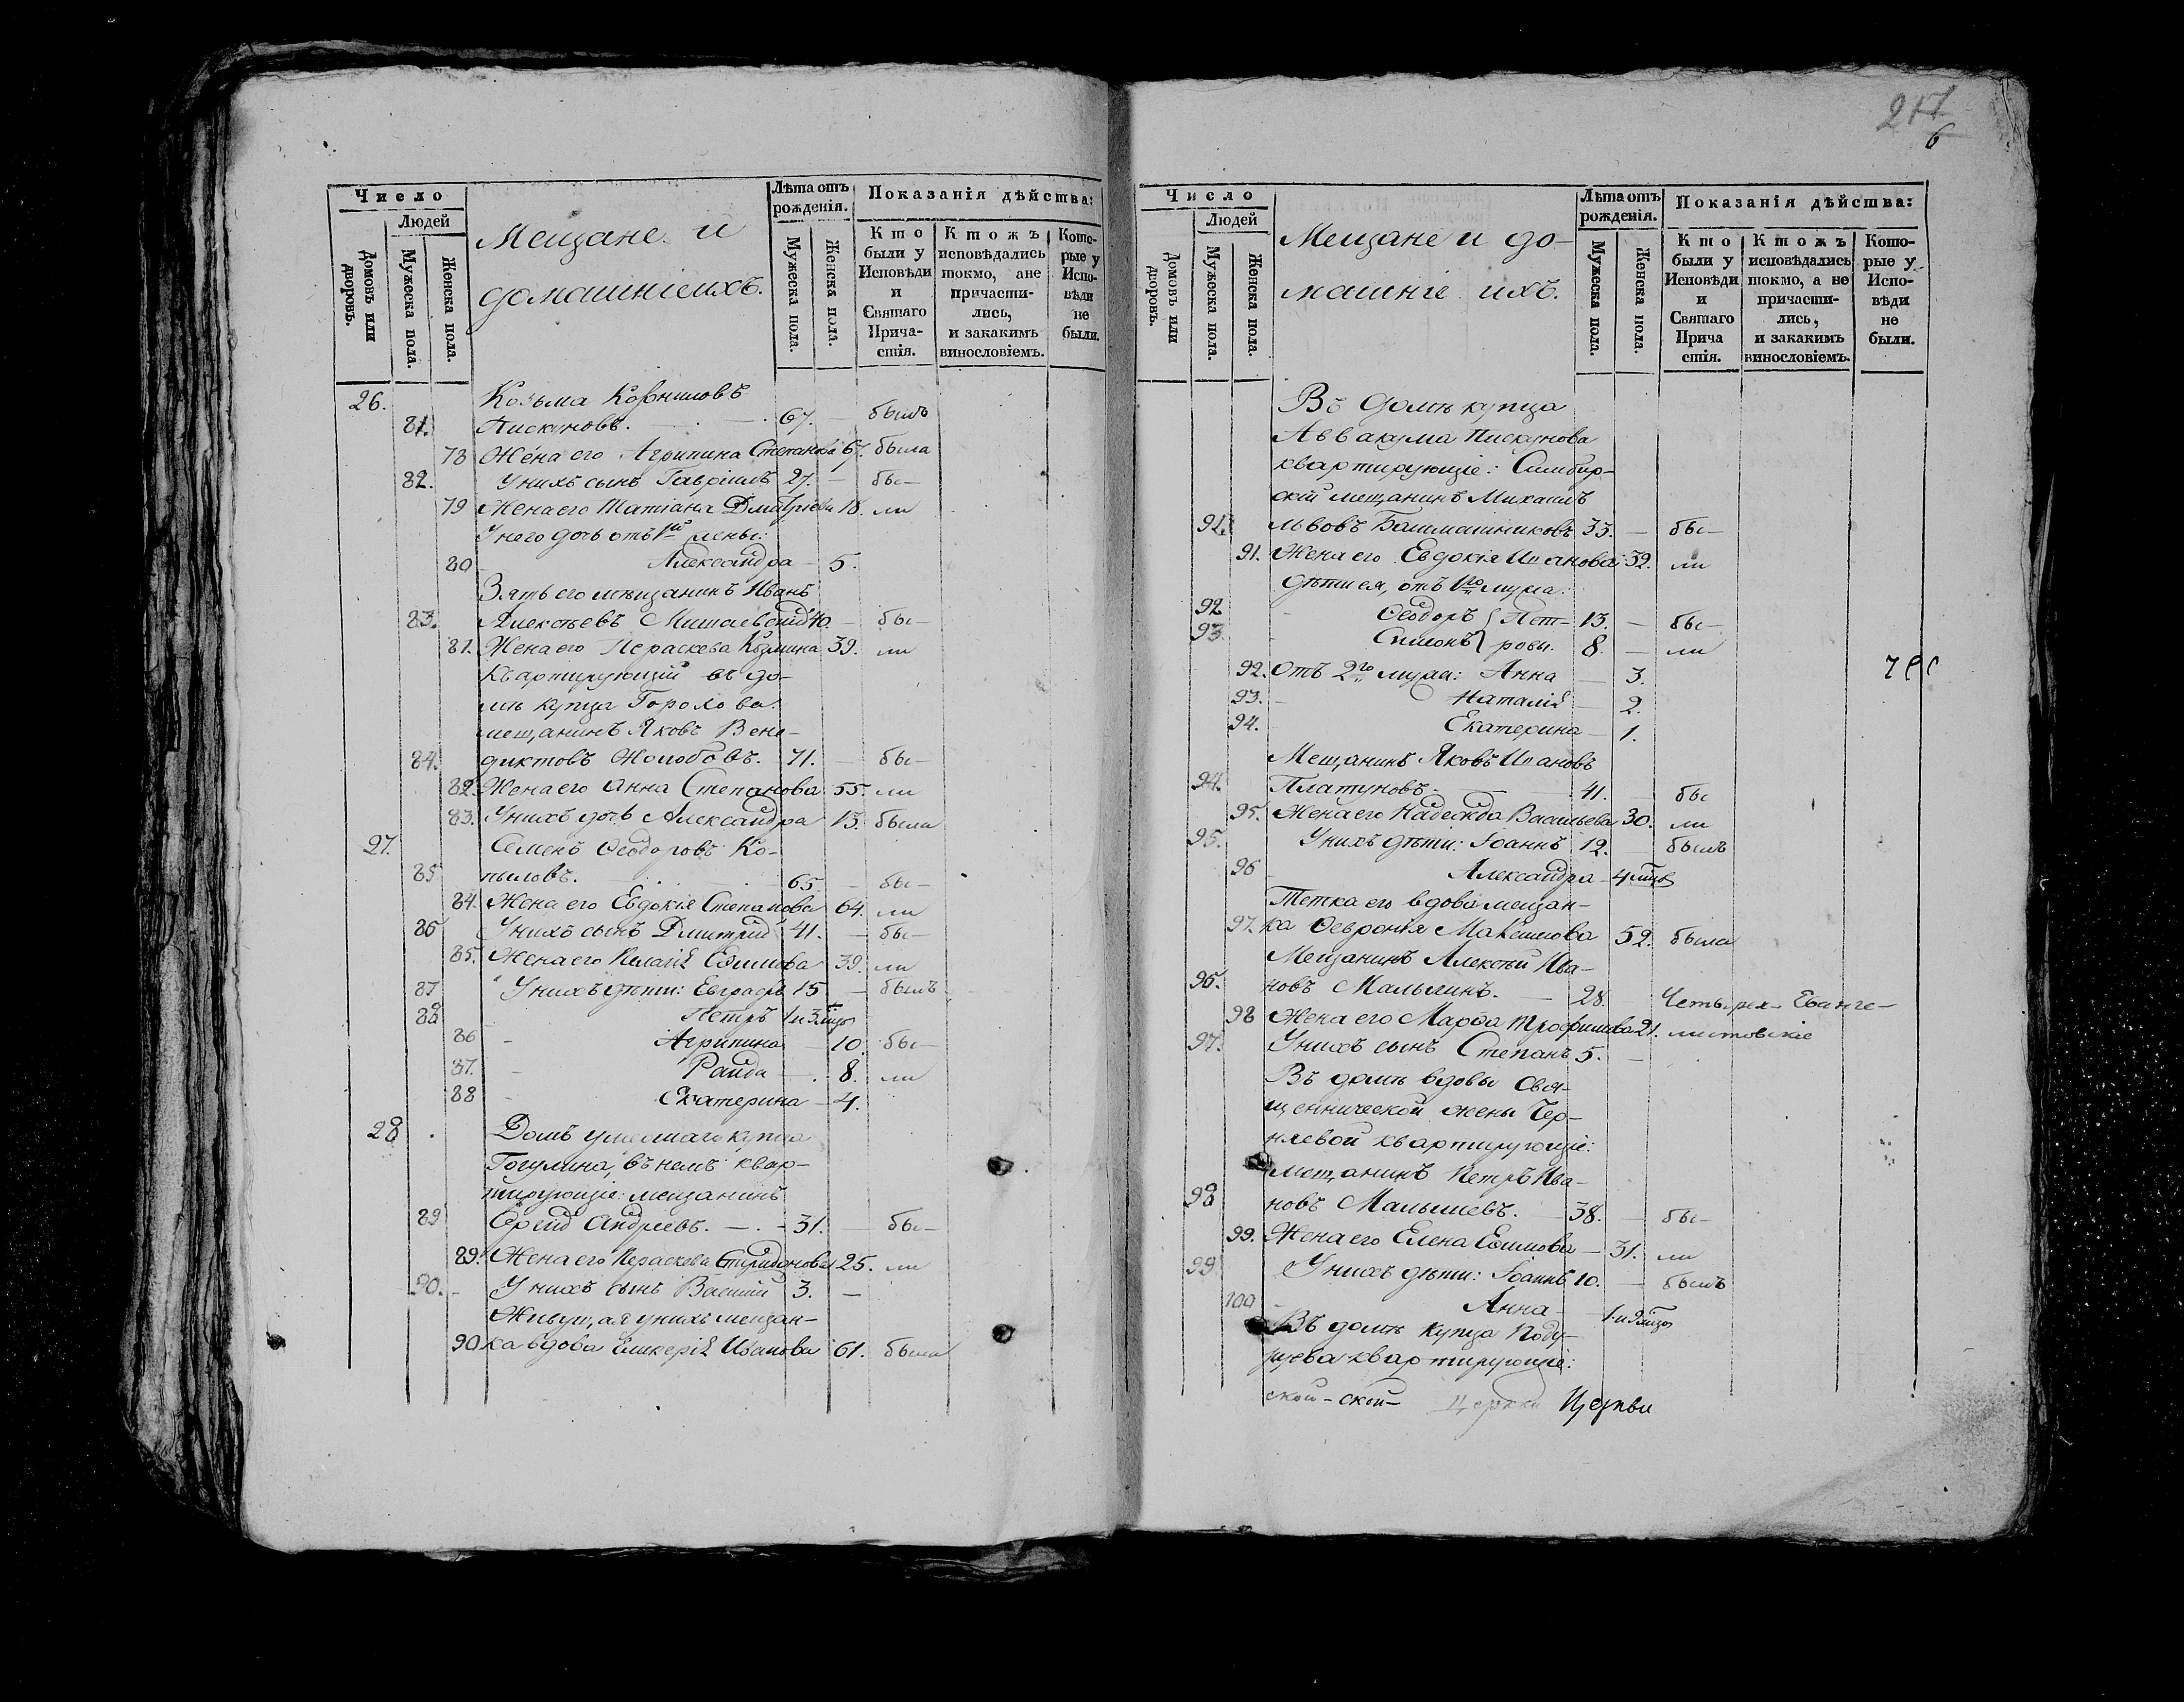 Число
Людей
Домовъ или дворовъ.
Мужеска пола.
Женска пола.
Мещане и
домашніе ихъ.
Лѣта отъ
рожденія.
Мужеска пола.
Женска пола.
Показанія дѣйства:
Кто были у Исповѣди и Святаго Прича- стія.
Ктожъ исповѣдались токмо, а не причасти- лись, и закакимъ винословіемъ.
Кото- рые у Испо- вѣди не были.
26. Козьма Корниловъ
81. Пискуновъ. 67. — былъ
78 Жена его Агрипина Степанова 67. была
82. У нихъ сынъ Гавріилъ 27. — бы—
79 Жена его Татіана Дмитріева 18. ли
У него дочь отъ 1й жены:
80 Александра — 5.
Зять его мѣщанинъ Иванъ
83. Алексѣевъ 40. — бы—
81. Жена его Пераскева Козмина 39. ли
Квартирующій въ до-
мѣ купца Горохова:
мещанинъ Яковъ Вене-
84. диктовъ Жолобовъ. 71. — бы—
82. Жена его Анна Степанова 55. ли
83. У нихъ дочь Александра 13. была
27. Семенъ Ѳеодоровъ Ко-
85 пыловъ. 65. — бы—
84. Жена его Евдокія Степанова 64. ли
86 У нихъ сынъ Дмитрій 41. — бы—
85. Жена его Пелагія Еѳимова 39. ли
87 У нихъ дѣти: Евграфъ 15 — былъ
88 Петръ 1 и 3 мцв
86 - Агрипина — 10. бы—
87. - Раида — 8. ли
88 - Екатерина — 4.
28. Домъ умершаго купца
Гогулина, въ немъ квар-
тирующіе: мещанинъ
89 Андреевъ. — 31. — бы—
89. Жена его Пераскева Спиридонова 25. ли
90. - У нихъ сынъ Василій 3. —
Живущая у нихъ мещан-
90 ка вдова Гликерія Иванова 61. была
217
6
Число
Людей
Домовъ или дворовъ.
Мужеска пола.
Женска пола.
Мещане и до-
машніе ихъ.
Лѣта отъ
рожденія.
Мужеска пола.
Женска пола.
Показанія дѣйства:
Кто были у Исповѣди и Святаго Прича стія.
Ктожъ исповѣдались токмо, а не причасти- лись, и закакимъ винословіемъ.
Кото- рые у Испо- вѣди не были.
Въ домѣ купца
Аввакума Пискунова
квартирующіе: Симбир-
скій мещанинъ Михаилъ
91. Львовъ Башмашниковъ 33. — бы—
91. Жена его Евдокія Иванова 32. ли
Дѣти ея, отъ 1го мужа:
92 - Ѳеодоръ } Пет- 13. — бы—
93. - Симонъ } ровы. 8. — ли
92. Отъ 2го мужа: Анна — 3.
93. - Наталія — 2.
94. Екатерина — 1.
Мещанинъ Яковъ Ивановъ
94. Платуновъ. 41. — бы
95. Жена его Надежда Васильева 30. ли
95. У нихъ дѣти: Іоаннъ 12. — былъ
96 - Александра — 4 мцв
Тетка его вдова мещан-
97. ка Ѳевронія Максимова 52. была
Мещанинъ Алексѣй Ива-
96. новъ Малыгинъ. — 28. Четырех- Еванге-
98 Жена его Марѳа Трофимова 21. листовскіе
97. У нихъ сынъ Степанъ 5. —
Въ домѣ вдовы Свя-
щеннической жены Чер-
няевой квартирующіе:
мещанинъ Петръ Ива-
98 новъ Малышевъ. — 38. — бы—
99. Жена его Елена Еѳимова — 31. ли
99 У нихъ дѣти: Іоаннъ 10. — былъ
100 Анна — 1 и 9 мцв
Въ домѣ купца Поду-
руева квартирующіе:
ской-ской- Церкви Церкви